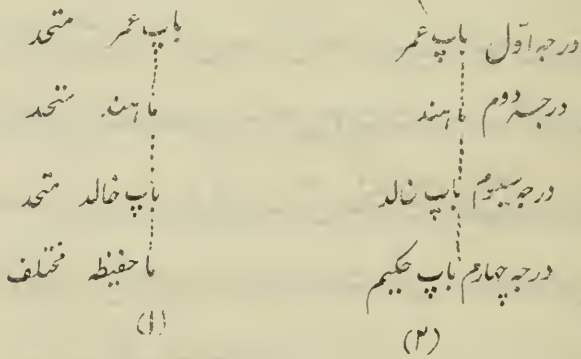 درجہ اوّل باپ عمر
درجہ دوم ماہند
درجہ سیوم باپ خالد
درجہ چہارم باپ حکیم
(۲)
باپ عمر متحد
ماہند متحد
باپ خالد متحد
ما حفیظہ مختلف
(۱)